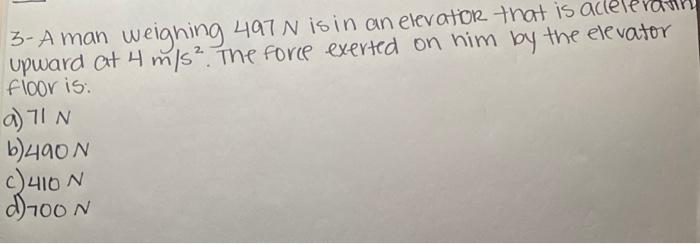 3- A man weighing 497 N is in an elevator that is accelerating
upward at 4 m/s². The force exerted on him by the elevator
floor is:
a) 71 N
b) 490 N
c) 410 N
d) 700 N